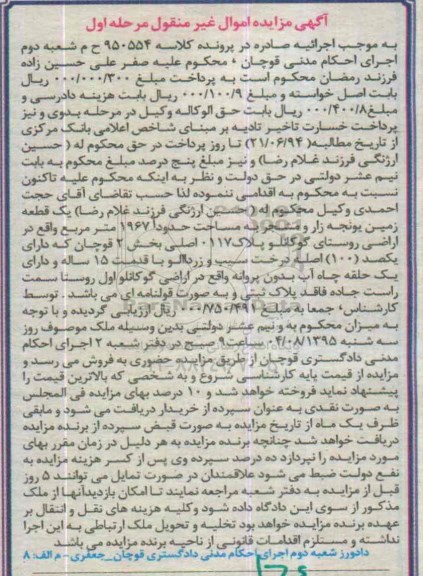 آگهی مزایده اموال غیر منقول مرحله اول
به موجب اجرائیه صادره در پرونده کلاسه ۹۵۰۵۵۴ ح م شعبه دوم
اجرای احکام مدنی قوچان ، محکوم علیه صفر علی حسین زاده
فرزند رمضان محکوم است به پرداخت مبلغ ۳۰۰/۰۰۰/۰۰۰ ریال
بابت اصل خواسته و مبلغ ۰۰۰/۱۰۰/۹ ریال بابت هزینه دادرسی و
مبلغ۰۰۰/۴۰۰/۸ ریال بابت حق الوکاله وکیل در مرحله بدوی و نیز
پرداخت خسارت تاخیر تادیه بر مبنای شاخص اعلامی بانک مرکزی
از تاریخ مطالبه( ۲۱/۰۶/۹۴) تا روز پرداخت در حق محکوم له ( حسین
ارژنگی فرزند غلام رضا) و نیز مبلغ پنج درصد مبلغ محکوم به بابت
نیم عشر دولتی در حق دولت و نظر به اینکه محکوم علیه تاکنون
نسبت به محکوم به اقدامی ننموده لذا حسب تقاضای آقای حجت
احمدی وکیل محکوم له ( حسین ارژنگی فرزند غلام رضا) یک قطعه
زمین یونجه زار و مشجر به مساحت حدوداً ۱۹۶۷ متر مربع واقع در
اراضی روستای گوگانلو پلاک۱۱۷ ۰ اصلی بخش ۲ قوچان که دارای
یکصد (۱۰۰) اصله درخت سیب و زردآلو با قدمت ۱۵ ساله و دارای
یک حلقه چاه آب بدون پروانه واقع در اراضی گوکانلو اول روستا سمت
راست جاده فاقد پلاک ثبتی و به صورت قولنامه ای می باشد . توسط
کارشناس، جمعا به مبلغ ۰۰۰/۷۵۰/۴۹۱ ریال ارزیابی گردیده و با توجه
به میزان محکوم به و نیم عشر دولتی بدین وسیله ملک موصوف روز
سه شنبه ۰۴/۰۸/۱۳۹۵ ساعت۹ صبح در دفتر شعبه ۲ اجرای احکام
مدنی دادگستری قوچان از طریق مزایده حضوری به فروش می رسد و
مزایده از قیمت پایه کارشناسی شروع و به شخصی که بالاترین قیمت را
پیشنهاد نماید فروخته خواهد شد و ۱۰ درصد بهای مزایده فی المجلس
به صورت نقدی به عنوان سپرده از خریدار دریافت می شود و مابقی
ظرف یک ماه از تاریخ مزایده به صورت قبض سپرده از برنده مزایده
دریافت خواهد شد چنانچه برنده مزایده به هر دلیل در زمان مقرر بهای
مورد مزایده را نپردازد ده درصد سپرده وی پس از کسر هزینه مزایده به
نفع دولت ضبط می شود علاقمندان در صورت تمایل می توانند ۵ روز
قبل از مزایده به دفتر شعبه مراجعه نمایند تا امکان بازدیدآنها از ملک
مذکور از سوی این دادگاه داده شود وکلیه هزینه های نقل و انتقال بر
عهده برنده مزایده خواهد بود تخلیه و تحویل ملک ارتباطی به این اجرا
نداشته و مستلزم اقدامات قانونی از ناحیه برنده مزایده می باشد
دادورز شعبه دوم اجرای احکام مدنی دادگستری قوچان_جعفری - م الف: ۸